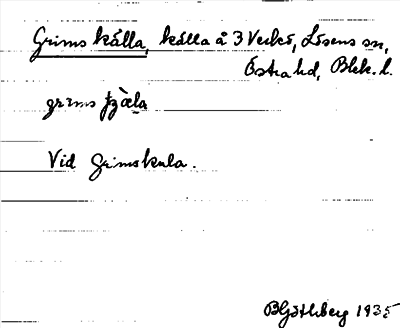 Grimskälla, källa å 3 Verkö, Lösens sn,
Östra hd, Blek. l.
grims ʃɟæ̀la
Vid Grimskula.
B Götlberg 1935